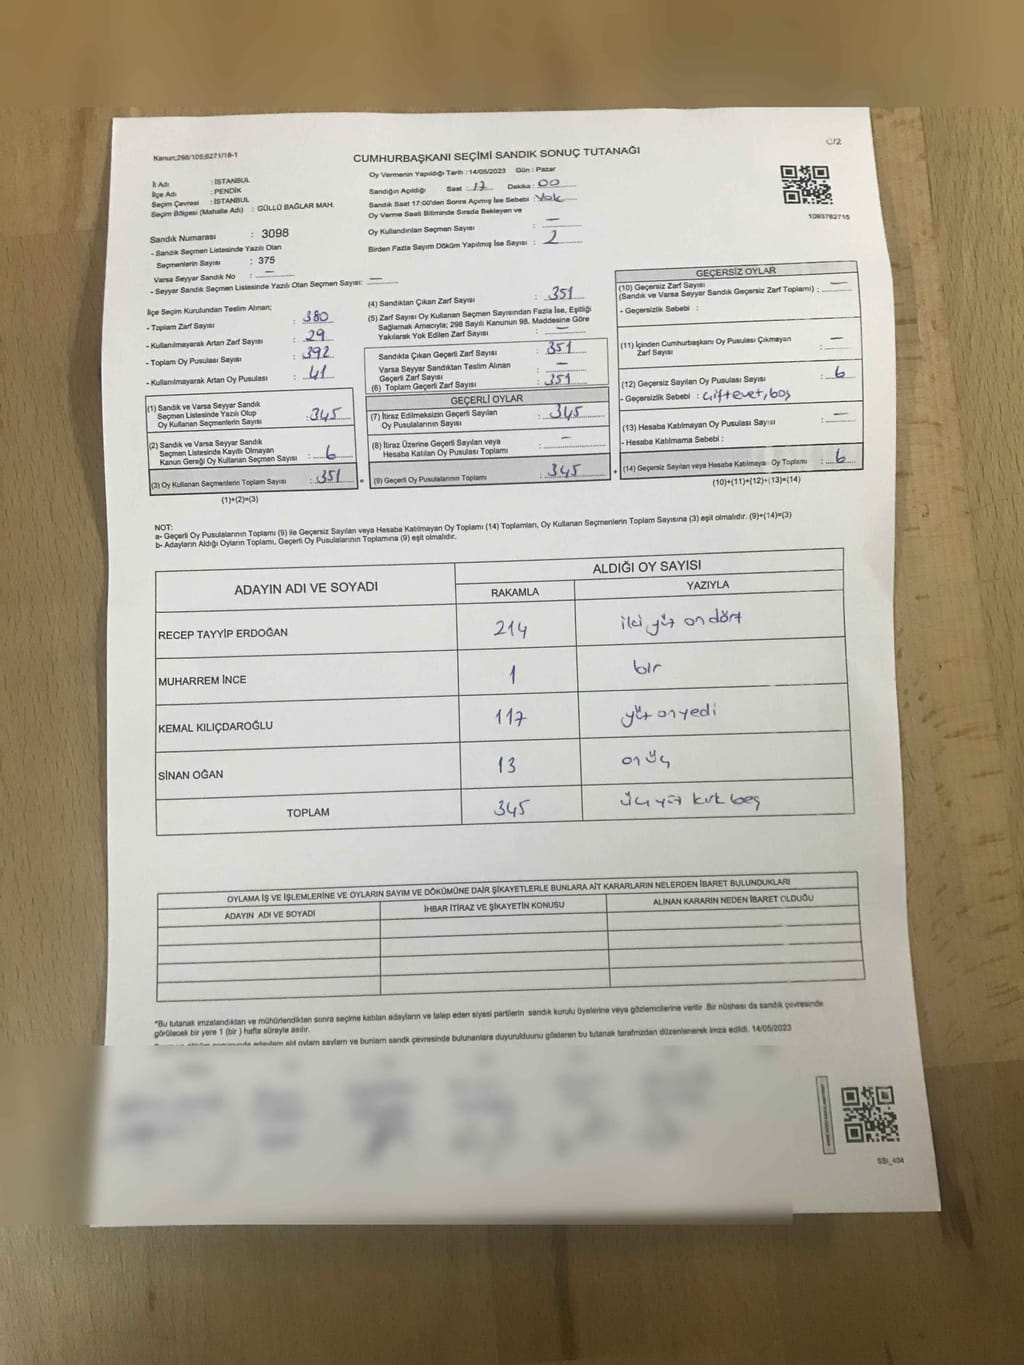 Kanun;298/105;6271/18-1
C/2
CUMHURBAŞKANI SEÇİMİ SANDIK SONUÇ TUTANAĞI
İl Adı : İSTANBUL
İlçe Adı : PENDİK
Seçim Çevresi : İSTANBUL
Seçim Bölgesi (Mahalle Adı) : GÜLLÜ BAĞLAR MAH.
Oy Vermenin Yapıldığı Tarih : 14/05/2023 Gün : Pazar
Sandığın Açıldığı Saat : 17 Dakika : 00
Sandık Saat 17:00'den Sonra Açılmış İse Sebebi : Yok
Oy Verme Saati Bitiminde Sırada Bekleyen ve
Oy Kullandırılan Seçmen Sayısı : —
Birden Fazla Sayım Döküm Yapılmış İse Sayısı : 2
1093782715
Sandık Numarası : 3098
- Sandık Seçmen Listesinde Yazılı Olan
Seçmenlerin Sayısı : 375
Varsa Seyyar Sandık No : —
- Seyyar Sandık Seçmen Listesinde Yazılı Olan Seçmen Sayısı: —
İlçe Seçim Kurulundan Teslim Alınan;
- Toplam Zarf Sayısı : 380
- Kullanılmayarak Artan Zarf Sayısı : 29
- Toplam Oy Pusulası Sayısı : 392
- Kullanılmayarak Artan Oy Pusulası : 41
(1) Sandık ve Varsa Seyyar Sandık
Seçmen Listesinde Yazılı Olup
Oy Kullanan Seçmenlerin Sayısı : 345
(2) Sandık ve Varsa Seyyar Sandık
Seçmen Listesinde Kayıtlı Olmayan
Kanun Gereği Oy Kullanan Seçmen Sayısı : 6
(3) Oy Kullanan Seçmenlerin Toplam Sayısı : 351
(1)+(2)=(3)
=
(4) Sandıktan Çıkan Zarf Sayısı : 351
(5) Zarf Sayısı Oy Kullanan Seçmen Sayısından Fazla İse, Eşitliği
Sağlamak Amacıyla; 298 Sayılı Kanunun 98. Maddesine Göre
Yakılarak Yok Edilen Zarf Sayısı : —
Sandıkta Çıkan Geçerli Zarf Sayısı : 351
Varsa Seyyar Sandıktan Teslim Alınan
Geçerli Zarf Sayısı : —
(6) Toplam Geçerli Zarf Sayısı : 351
GEÇERLİ OYLAR
(7) İtiraz Edilmeksizin Geçerli Sayılan
Oy Pusulalarının Sayısı : 345
(8) İtiraz Üzerine Geçerli Sayılan veya
Hesaba Katılan Oy Pusulası Toplamı : —
(9) Geçerli Oy Pusulalarının Toplamı : 345
+
GEÇERSİZ OYLAR
(10) Geçersiz Zarf Sayısı
(Sandık ve Varsa Seyyar Sandık Geçersiz Zarf Toplamı) : —
- Geçersizlik Sebebi :
(11) İçinden Cumhurbaşkanı Oy Pusulası Çıkmayan
Zarf Sayısı : —
(12) Geçersiz Sayılan Oy Pusulası Sayısı : 6
- Geçersizlik Sebebi : Çift evet, boş
(13) Hesaba Katılmayan Oy Pusulası Sayısı : —
- Hesaba Katılmama Sebebi :
(14) Geçersiz Sayılan veya Hesaba Katılmayan Oy Toplamı : 6
(10)+(11)+(12)+(13)=(14)
NOT:
a- Geçerli Oy Pusulalarının Toplamı (9) ile Geçersiz Sayılan veya Hesaba Katılmayan Oy Toplamı (14) Toplamları, Oy Kullanan Seçmenlerin Toplam Sayısına (3) eşit olmalıdır. (9)+(14)=(3)
b- Adayların Aldığı Oyların Toplamı, Geçerli Oy Pusulalarının Toplamına (9) eşit olmalıdır.
ADAYIN ADI VE SOYADI ALDIĞI OY SAYISI
RAKAMLA YAZIYLA
RECEP TAYYİP ERDOĞAN 214 iki yüz on dört
MUHARREM İNCE 1 bir
KEMAL KILIÇDAROĞLU 117 yüz onyedi
SİNAN OĞAN 13 on üç
TOPLAM 345 üç yüz kırk beş
OYLAMA İŞ VE İŞLEMLERİNE VE OYLARIN SAYIM VE DÖKÜMÜNE DAİR ŞİKAYETLERLE BUNLARA AİT KARARLARIN NELERDEN İBARET BULUNDUKLARI
ADAYIN ADI VE SOYADI İHBAR İTİRAZ VE ŞİKAYETİN KONUSU ALINAN KARARIN NEDEN İBARET OLDUĞU
*Bu tutanak imzalandıktan ve mühürlendikten sonra seçime katılan adayların ve talep eden siyasi partilerin sandık kurulu üyelerine veya gözlemcilerine verilir .Bir nüshası da sandık çevresinde
görülecek bir yere 1 (bir ) hafta süreyle asılır.
bulunanlara duyurulduunu gösteren bu tutanak tarafmzdan düzenlenerek imza edildi. 14/05/2023
SSt_404